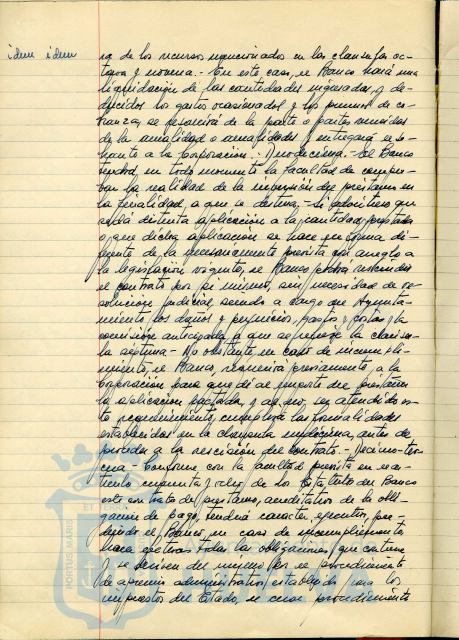 idem idem
ra de los recursos mencionados en las clausulas oc-
tava y novena.- En este caso, el Banco hará una
liquidación de las cantidades ingresadas, y de-
ducidos los gastos ocasionados y los premios de co-
branza, se resarcirá de la parte o partes vencidas
de la anualidad o anualidades y entregará el so-
brante a la Corporación.- Duodécima.- El Banco
tendrá, en todo momento la facultad de compro-
bar la realidad de la inversión del prestamo en
la finalidad a que se destina.- Si advirtiese que
se da distinta aplicación a la cantidad prestada
o que dicha aplicación se hace en forma di-
ferente de la necesariamente prevista con arreglo a
la legislación vigente, el Banco podrá rescindir
el contrato por si mismo, sin necesidad de re-
solución judicial, siendo a cargo del Ayunta-
miento, los daños y perjuicios, gastos y costas y la
comisión anticipada a que se refiere la clausu-
la septima.- No obstante, en caso de incumpli-
miento, el Banco, requerirá previamente a la
Corporación para que dé al importe del prestamo
la aplicación pactada, y de no ser atendido es-
te requerimiento, cumplirá las formalidades
establecidas en la clausula undécima, antes de
proceder a la rescisión del contrato.- Décimo-ter-
cera.- Conforme con lo previsto en el ar-
tículo cincuenta y ocho de los Estatutos del Banco
este contrato de prestamo, acreditativo de la obli-
gación de pago, tendrá caracter ejecutivo, pu-
diendo el Banco en caso de incumplimiento
hacer efectivas todas las obligaciones que contiene
y se deriven del mismo por el procedimiento
de apremio administrativo, establecido para los
impuestos del Estado, el cual procedimiento
PORTUS MARIS
ET TERRA